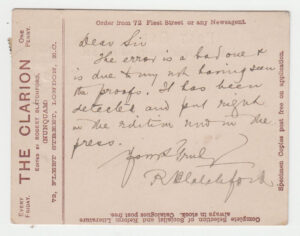 Order from 72 Fleet Street or any Newsagent.
EVERY FRIDAY.
THE CLARION
ONE PENNY.
EDITED BY ROBERT BLATCHFORD,
(NUNQUAM)
72, FLEET STREET, LONDON, E.C.
Dear Sir
The error is a bad one &
is due to my not having seen
the proofs. It has been
detected and put right
in the edition now in the
press.
Yours truly
R Blatchford
Specimen Copies post free on application.
Complete Selection of Socialist and Reform Literature
always in stock. Catalogues post free.